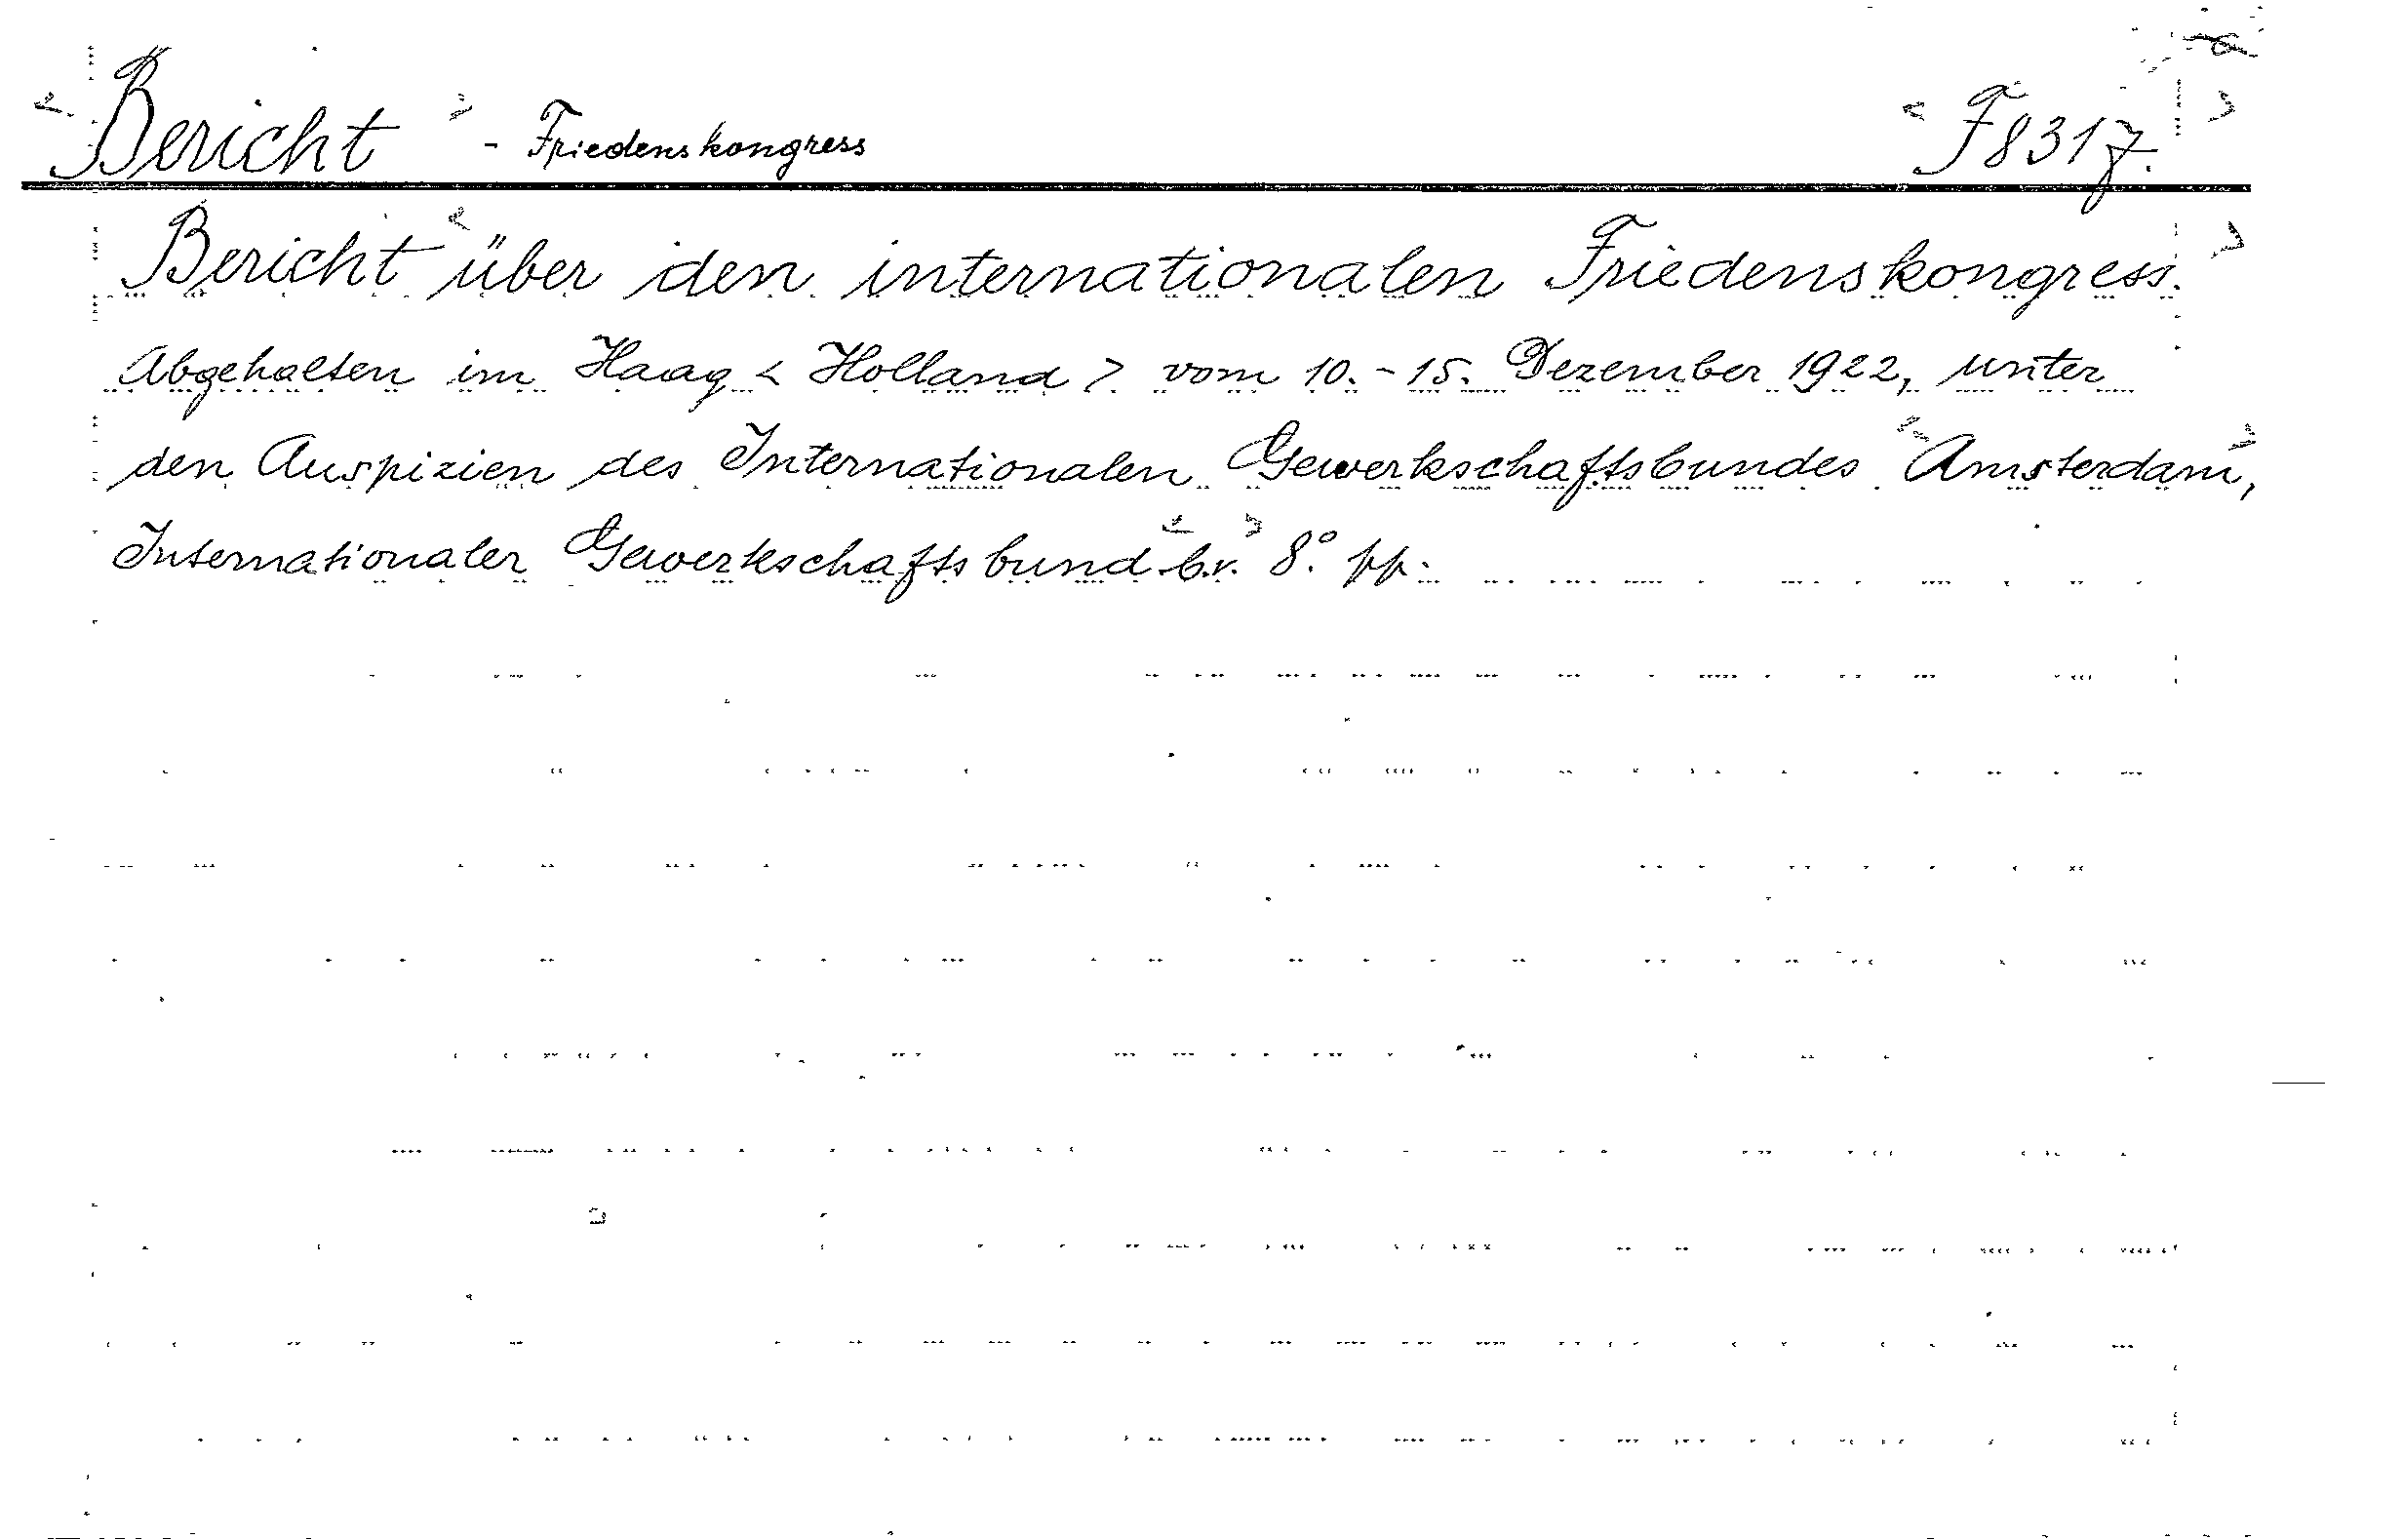 <Bericht> - Friedenskongress <F8317.>
Bericht <über den internationalen Friedenskongress.>
Abgehalten im Haag < Holland > vom 10.-15. Dezember 1922, unter
den Auspizien des Internationalen Gewerkschaftsbundes <Amsterdam>,
Internationaler Gewerkschaftsbund <b.v.> 8° pp.